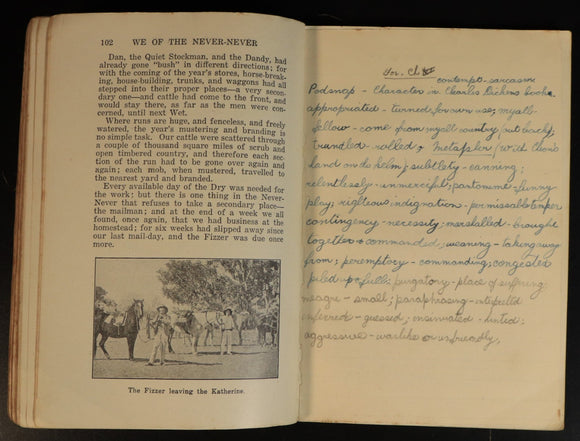 102 WE OF THE NEVER-NEVER
Dan, the Quiet Stockman, and the Dandy, had
already gone "bush" in different directions; for
with the coming of the year's stores, horse-break-
ing, house-building, trunks, and waggons had all
stepped into their proper places—a very secon-
dary one—and cattle had come to the front, and
would stay there, as far as the men were con-
cerned, until next Wet.
Where runs are huge, and fenceless, and freely
watered, the year's mustering and branding is
no simple task. Our cattle were scattered through
a couple of thousand square miles of scrub and
open timbered country, and therefore each sec-
tion of the run had to be gone over again and
again; each mob, when mustered, travelled to
the nearest yard and branded.
Every available day of the Dry was needed for
the work; but there is one thing in the Never-
Never that refuses to take a secondary place—
the mailman; and at the end of a week we all
found, once again, that we had business at the
homestead; for six weeks had slipped away since
our last mail-day, and the Fizzer was due once
more.
The Fizzer leaving the Katherine.
contempo - sarcasm
Podsnap - Character in Charles Dickens books
appropriated - turned for own use; myall-
fellow - come from myall country, out back;
trundled - rolled; Metaphor (With Chon's
hand on de helm); subtlety - cunning;
relentlessly - unmerciful; pantomime - funny
play; righteous indignation - permissable temper
contingency - necessity; marshalled - brought
together & commanded; weaning - taking away
from; peremptory - commanding; congested
piled up, full; purgatory - place of suffering
meagre - small; paraphrasing - interpreted
inferred - guessed; insinuated - hinted;
aggressive - warlike or unfriendly,